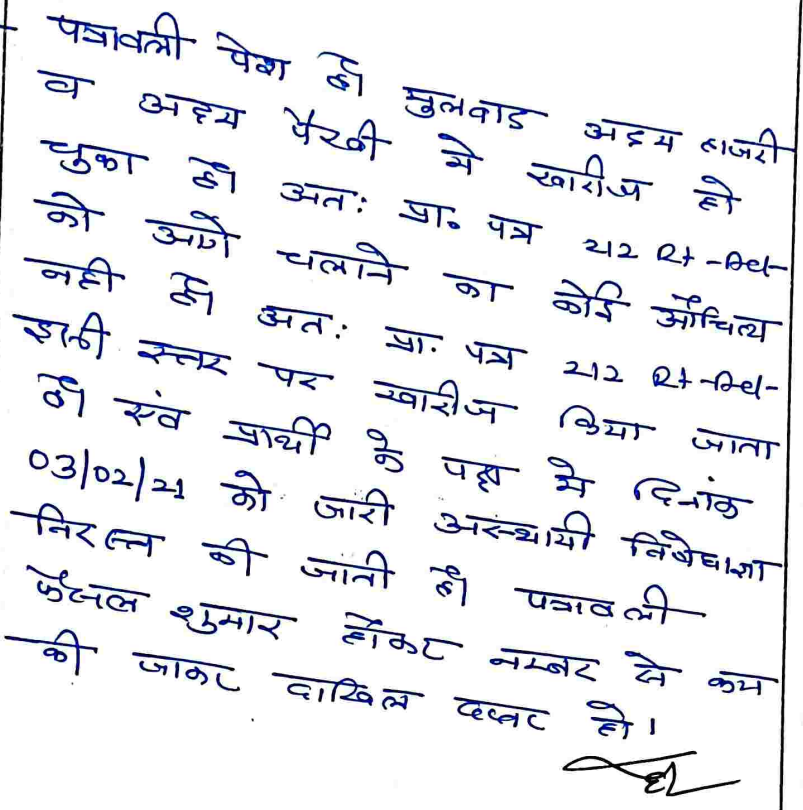 पत्रावली पेश है मुलवाद अदम हाजरी
व अदम पैरवी मे खारीज हो
चुका है अतः प्रा० पत्र 212 Rt-Act-
को आगे चलाने का कोई औचित्य
नही है अतः प्रा. पत्र 212 Rt-Act-
इसी स्तर पर खारीज किया जाता
है एंव प्रार्थी के पक्ष मे दिनांक
03/02/21 को जारी अस्थायी निषेधाज्ञा
निरस्त की जाती है पत्रावली
फैसल शुमार होकर नम्बर से कम
की जाकर दाखिल दफ्तर हो।